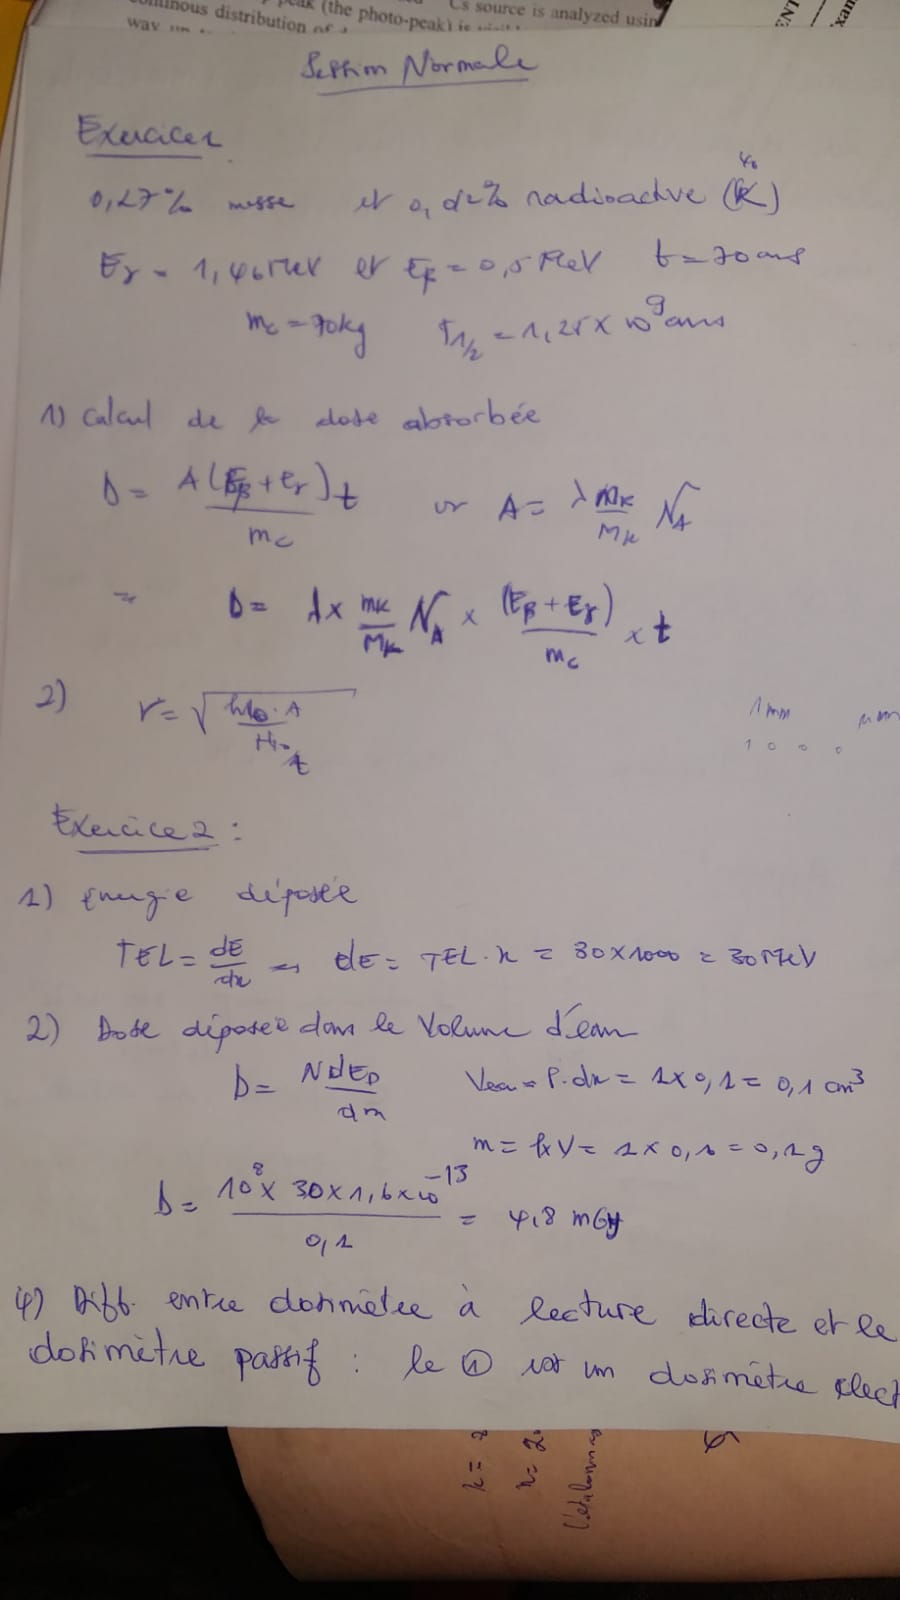 peak (the photo-peak) is
Cs source is analyzed usin
distribution of
way
ENT
Session Normale
Exercice 1
0,27% masse et 0,012% radioactive (⁴⁰K)
Eγ = 1,46 MeV et Eβ = 0,5 MeV t = 70 ans
mc = 70kg T1/2 = 1,25 x 10⁹ ans
1) Calcul de la dose absorbée
D = A(Eβ + eγ)t / mc or A = λ mK/MK NA
D = λ x mK/MK NA x (Eβ + Eγ)/mc x t
2) r = √
1 mm
1 0 0 0
Exercice 2 :
1) Energie déposée
TEL = dE/dx dE = TEL . x = 30 x 1000 = 30 MeV
2) Dose déposée dans le Volume d'eau
D = N dED / dm Veau = P. dx = 1 x 0,1 = 0,1 cm³
m = ρ x V = 1 x 0,1 = 0,1g
D = 10⁸ x 30 x 1,6 x 10⁻¹³ / 0,1 = 4,8 mGy
4) Diff. entre dosimètre à lecture directe et le
dosimètre passif : le ① est un dosimètre élect